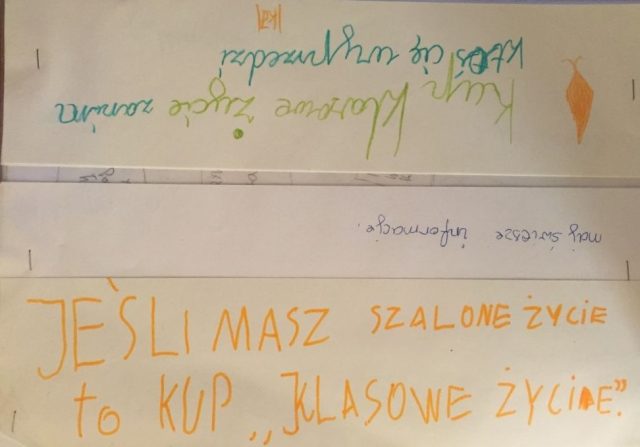 Kup klasowe życie zanim
ktoś cię wyprzedzi
miej świeższe informacje.
JEŚLI MASZ SZALONE ŻYCIE
to KUP „KLASOWE ŻYCIE”.